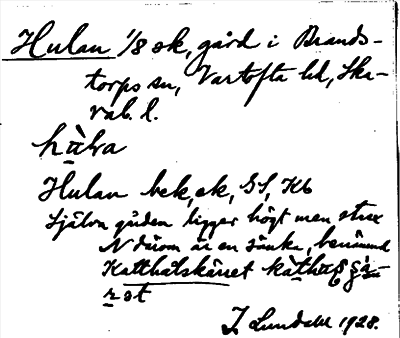 Hulan 1/8 sk, gård i Brands-
torps sn, Vartofta hd, Ska-
rab. l.
hùlva
Hulan bek, ek, GS, Kb
Själva gården ligger högt men strax
N därom är en sänka, benämnd
Katthålskärret
rət
J. Lundahl 1928.